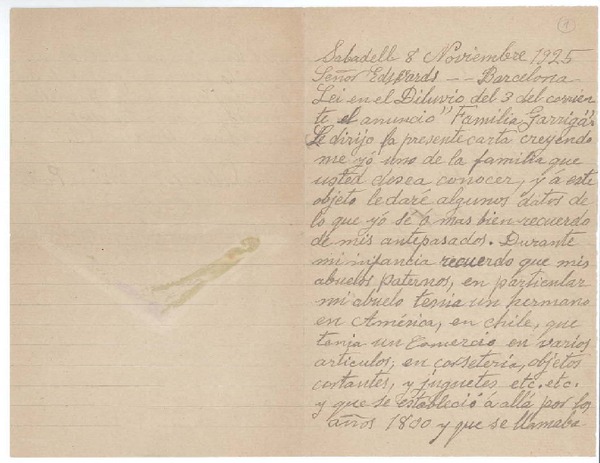 1
Sabadell 8 Noviembre 1925
Señor Edwards -- Barcelona
Lei en el Diluvio del 3 del corrien
te el anuncio "Familia Garrigá".
Le dirijo la presente carta creyendo
me yó uno de la familia que
usted desea conocer, y á este
objeto le daré algunos datos de
lo que yó sé ó mas bien recuerdo
de mis antepasados. Durante
mi infancia recuerdo que mis
abuelos paternos, en particular
mi abuelo tenia un hermano
en América, en Chile, que
tenia un Comercio en varios
articulos; en corsetería, objetos
cortantes, y juguetes etc. etc.
y que se estableció á allá por los
años 1800 y que se llamaba